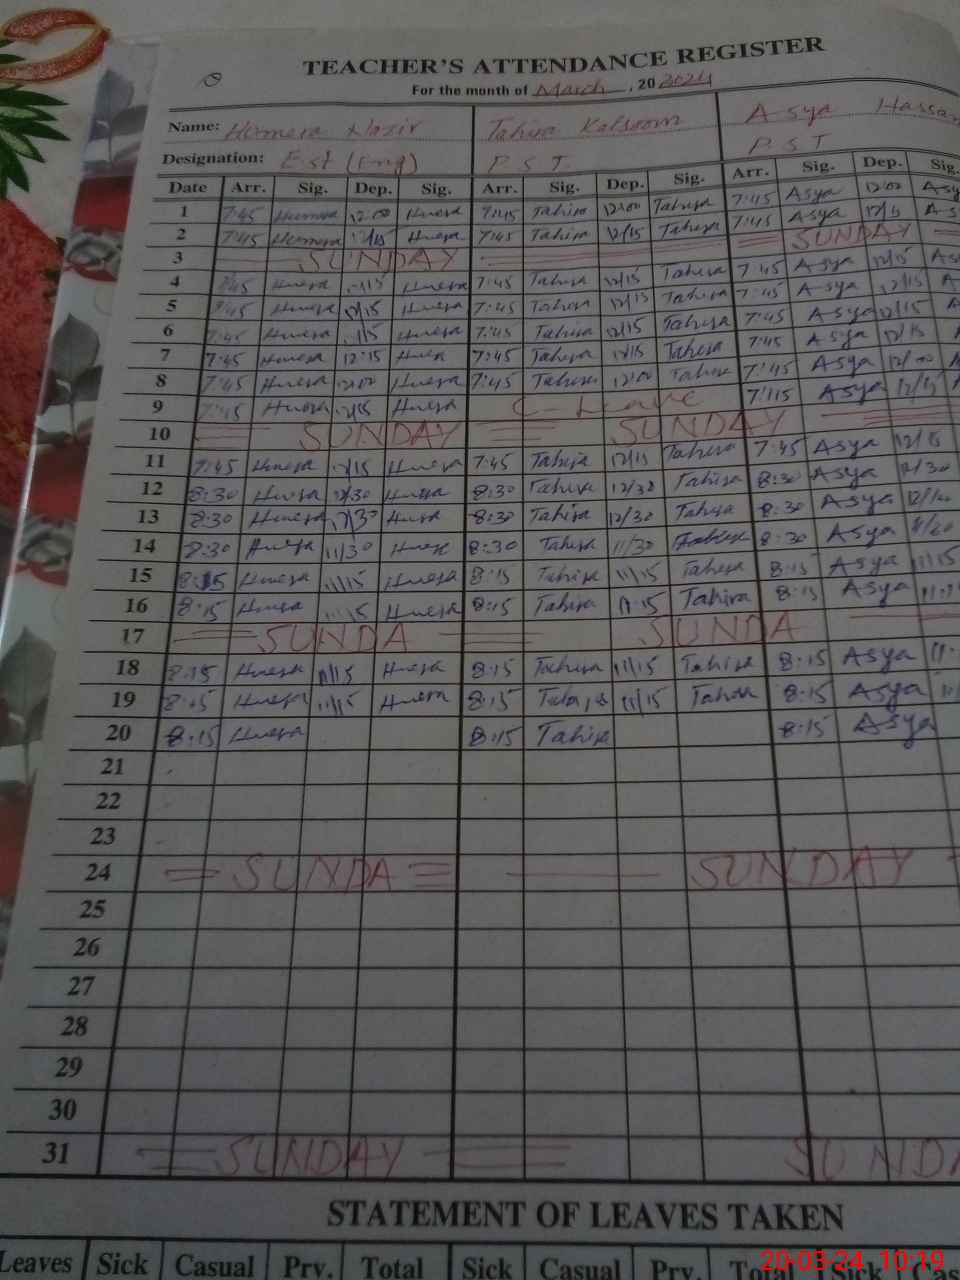 TEACHER'S ATTENDANCE REGISTER
For the month of March, 20 2024
Name: Humera Nazir Tahira Kalsoom Asya Hassan
Designation: Est (Eng) P.S.T. P.S.T
Date Arr. Sig. Dep. Sig. Arr. Sig. Dep. Sig. Arr. Sig. Dep. Sig.
1 7:45 Humera 12:00 Humera 7:45 Tahira 12:00 Tahira 7:45 Asya 12:00 Asy
2 7:45 Humera 12/15 Humera 7:45 Tahira 12/15 Tahira 7:45 Asya 12/15 As
3 SUNDAY SUNDAY
4 7:45 Humera 12/15 Humera 7:45 Tahira 12/15 Tahira 7:45 Asya 12/15 As
5 7:45 Humera 12/15 Humera 7:45 Tahira 12/15 Tahira 7:45 Asya 12/15 A
6 7:45 Humera 12/15 Humera 7:45 Tahira 12/15 Tahira 7:45 Asya 12/15 A
7 7:45 Humera 12:15 Humera 7:45 Tahira 12/15 Tahira 7:45 Asya 12/15
8 7:45 Humera 12:00 Humera 7:45 Tahira 12:00 Tahira 7:45 Asya 12/00
9 7:45 Humera 12/15 Humera C-Leave 7:45 Asya 12/15
10 SUNDAY SUNDAY
11 7:45 Humera 12/15 Humera 7:45 Tahira 12/15 Tahira 7:45 Asya 12/15
12 8:30 Humera 12/30 Humera 8:30 Tahira 12/30 Tahira 8:30 Asya 12/30
13 8:30 Humera 12/30 Humera 8:30 Tahira 12/30 Tahira 8:30 Asya
14 8:30 Humera 11/30 Humera 8:30 Tahira 11/30 Tahira 8:30 Asya
15 8:15 Humera 11/15 Humera 8:15 Tahira 11/15 Tahira 8:15 Asya 11/15
16 8:15 Humera 11/15 Humera 8:15 Tahira 11:15 Tahira 8:15 Asya
17 SUNDA SUNDA
18 8:15 Humera 11/15 Humera 8:15 Tahira 11/15 Tahira 8:15 Asya
19 8:15 Humera 11/15 Humera 8:15 Tahira 11/15 Tahira 8:15 Asya
20 8:15 Humera 8:15 Tahira 8:15 Asya
21
22
23
24 SUNDA SUNDAY
25
26
27
28
29
30
31 SUNDAY SUNDA
STATEMENT OF LEAVES TAKEN
Leaves Sick Casual Prv. Total Sick Casual Prv. Total Sick Cas
20-03-24 10:19